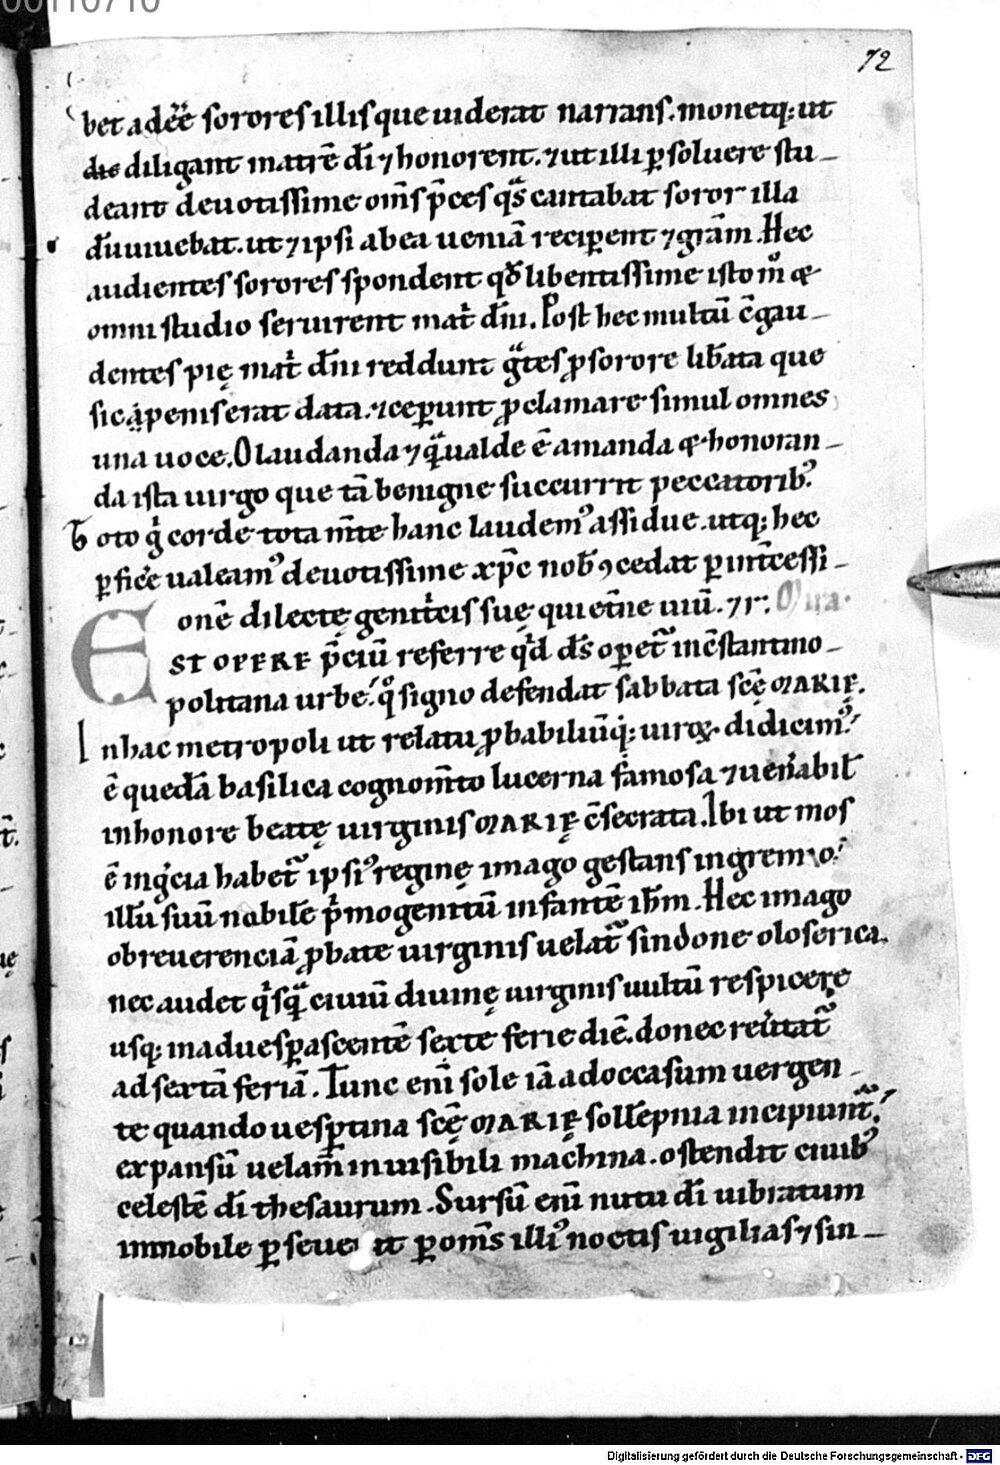 72
bet adeē sorores illis que uiderat narrans. monetq; ut
dī diligant matrē dī ⁊ honorent. ⁊ ut illi psoluere stu-
deant deuotissime om̄s p̄ces qͣs cantabat soror illa
dū uiuebat. ut ⁊ ipsi ab ea ueniā recipent ⁊ grām. Hec
audientes sorores spondent qd̄ libentissime isto mͦ &
omni studio seruirent mat̄ dn̄i. Post hec multū c̄gau-
dentes pię mat̄ dn̄i reddunt gͣtes p sorore libata que
sic a peni serat data. ⁊ cepunt pclamare simul omnes
una uoce. O laudanda ⁊ qͣ ualde ē amanda & honoran-
da ista uirgo que tā benigne succurrit peccatorib;
Toto gͥ corde tota m̄te hanc laudemꝰ assidue. utq; hec
pfice ualeamꝰ deuotissime xp̄c nob ꝯcedat p int̄cessi-
onē dilectę genitͥcis suę qui et̄ne uiū. ⁊ r.
EST OPERE p̄ciū referre qd ds̄ opetͬ in c̄stantino-
politana urbe. qͦ signo defendat sabbata scę MARIĘ.
In hac metropoli ut relatu pbabiliūq; uiroꝝ didicimꝰ
ē quedā basilica cognom̄to lucerna famosa ⁊ uen̄abil
in honore beatę uirginis MARIĘ c̄secrata. Ibi ut mos
ē in gͥcia habetͬ ipsiꝰ reginę imago gestans in gremio
illū suū nobile pͥmogenitū infantē ih̄m. Hec imago
ob reuerenciā pbate uirginis uelatͬ sindone oloserica.
nec audet qͥsqͣ ciuiū diuinę uirginis uultū respicere
usq; in aduespascentē sexte ferie diē. donec reūtatͬ
ad sextā feriā. Tunc eni sole iā ad occasum uergen-
te quando uesptina scę MARIĘ sollēpnia incipiunt̄;
expansū uelam̄ inuisibili machina. ostendit ciuibꝰ
celestē dī thesaurum. Sursū eni nutu dī uibratum
immobile pseue it p om̄s illiꝰ noctis uigilias ⁊ sin-
Digitalisierung gefördert durch die Deutsche Forschungsgemeinschaft - DFG